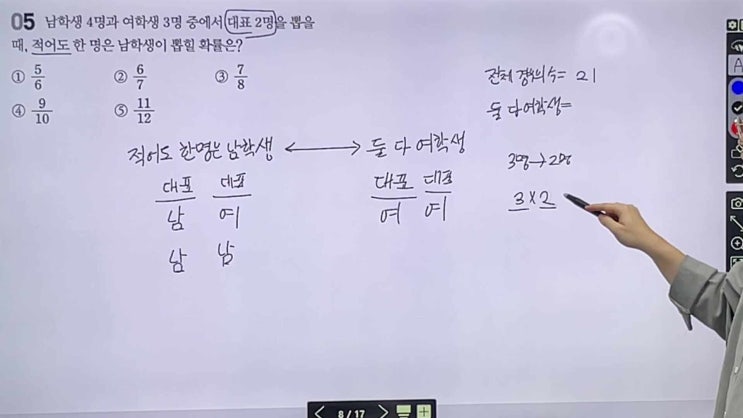 05 남학생 4명과 여학생 3명 중에서 대표 2명을 뽑을
때, 적어도 한 명은 남학생이 뽑힐 확률은?
① 5/6 ② 6/7 ③ 7/8
④ 9/10 ⑤ 11/12
전체 경우의 수 = 21
둘 다 여학생 =
적어도 한명은 남학생 ⟷ 둘 다 여학생
3명→2명
대표 대표 대표 대표
남 여 여 여
3×2
남 남
8 / 17